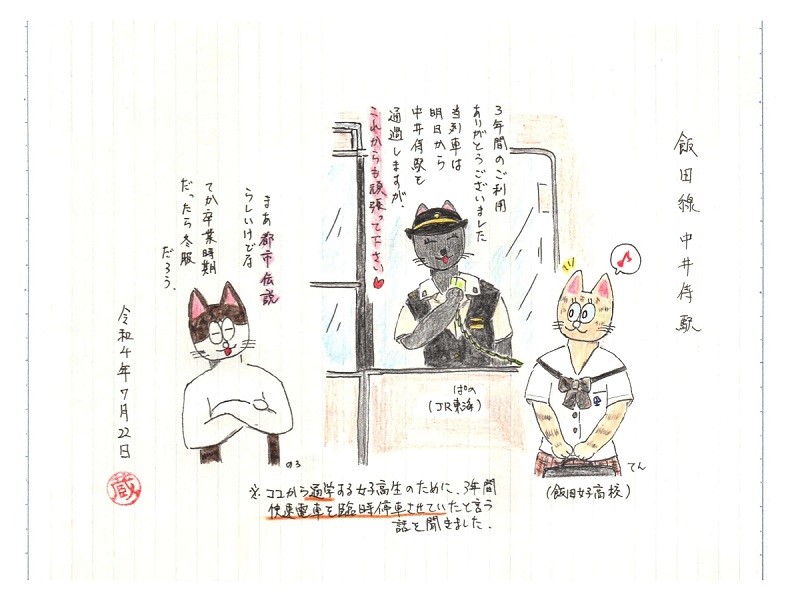 飯田線 中井侍駅
3年間のご利用
ありがとうございました
当列車は
明日から
中井侍駅を
通過しますが、
これからも頑張って下さい
まあ都市伝説
らしいけどな
てか卒業時期
だったら冬服
だろう。
令和4年7月22日
蔵
ぱの
(JR東海)
のろ
てん
(飯田女子高校)
※ココから通学する女子高生のために、3年間
快速電車を臨時停車させていたと言う
話を聞きました。